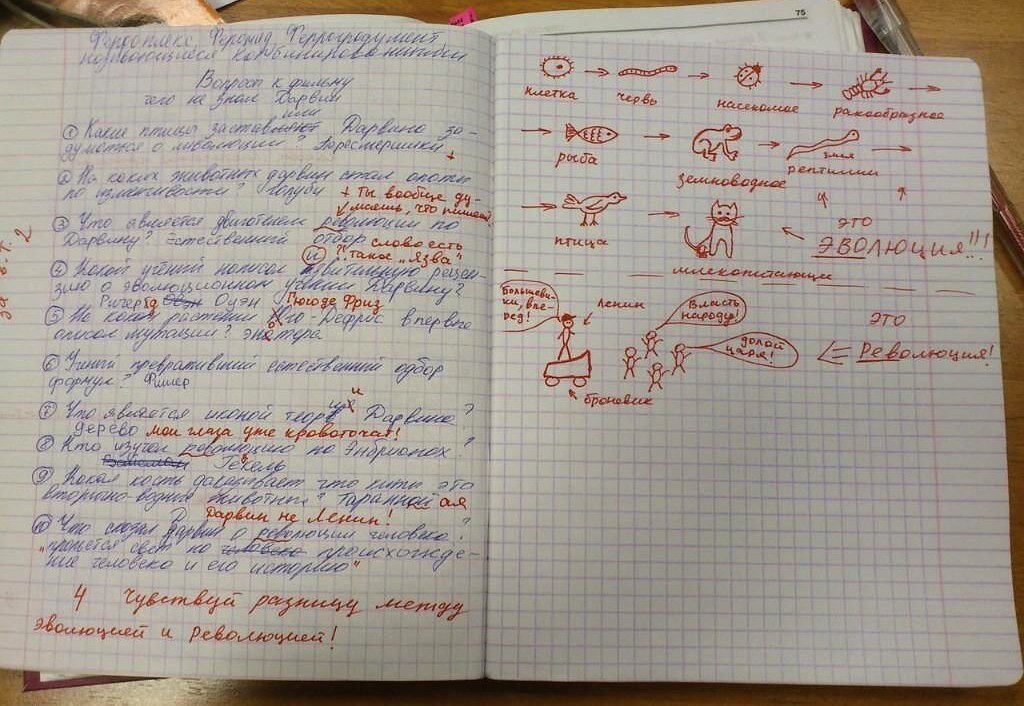 75
Вопросы к фильму
чего не знал Дарвин
① Какие птицы заставили Дарвина за-
думаться о революции? Пересмешники
+
② На каких животных дарвин стал опыты
по изменчивости? голуби + ты вообще ду-
маешь, что пишешь
③ Что является двигателем революции по
Дарвину? Естественный отбор слово есть
такое „Язва"
④ Какой учёний написал язвительную рецен-
зию о эволюционном учении Дарвину?
Ричерд Оуэн Гюго Де Фриз
⑤ На каком растении Юго-Дефриз впервые
описал мутации? энотера
⑥ Учёный превративший естественный одбор
формук? Фишер
⑦ Что является иконой теории Дарвина?
дерево мои глаза уже кровоточат!
⑧ Кто изучал революцию по Энбрионах?
Геккель
⑨ Какая кость доказывает что киты это
вторично-водные животные? Таранная
Дарвин не Ленин!
⑩ Что сказал Дарвин о революции человека?
„прольётся свет на человека происхожде-
ние человека и его историю"
4 Чувствуй разницу между
эволюцией и Революцией!
клетка червь насекомое ракообразное
рыба земноводное змея рептилии
птица
млекопитающие
это
ЭВОЛЮЦИЯ!!!
Большеви-
ки, впе-
ред!
Ленин
Власть
народу!
долой
царя!
броневик
это
Революция!